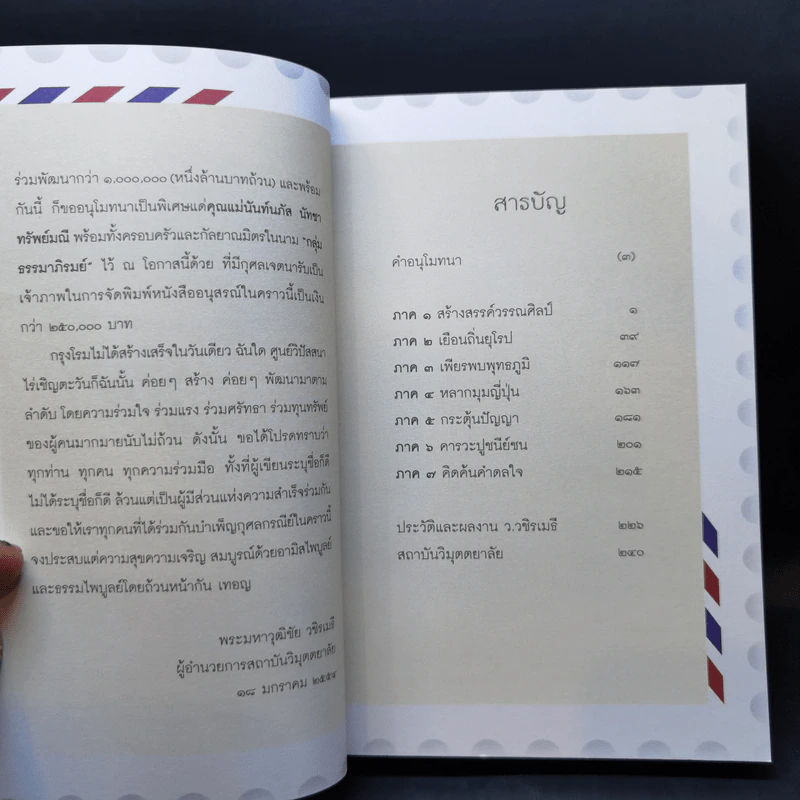 ร่วมพัฒนากว่า ๑,๐๐๐,๐๐๐ (หนึ่งล้านบาทถ้วน) และพร้อม
กันนี้ ก็ขออนุโมทนาเป็นพิเศษแด่คุณแม่นันท์นภัส นัทชา
ทรัพย์มณี พร้อมทั้งครอบครัวและกัลยาณมิตรในนาม “กลุ่ม
ธรรมาภิรมย์” ไว้ ณ โอกาสนี้ด้วย ที่มีกุศลเจตนารับเป็น
เจ้าภาพในการจัดพิมพ์หนังสืออนุสรณ์ในคราวนี้เป็นเงิน
กว่า ๒๕๐,๐๐๐ บาท
กรุงโรมไม่ได้สร้างเสร็จในวันเดียว ฉันใด ศูนย์วิปัสสนา
ไร่เชิญตะวันก็ฉันนั้น ค่อยๆ สร้าง ค่อยๆ พัฒนามาตาม
ลำดับ โดยความร่วมใจ ร่วมแรง ร่วมศรัทธา ร่วมทุนทรัพย์
ของผู้คนมากมายนับไม่ถ้วน ดังนั้น ขอได้โปรดทราบว่า
ทุกท่าน ทุกคน ทุกความร่วมมือ ทั้งที่ผู้เขียนระบุชื่อก็ดี
ไม่ได้ระบุชื่อก็ดี ล้วนแต่เป็นผู้มีส่วนแห่งความสำเร็จร่วมกัน
และขอให้เราทุกคนที่ได้ร่วมกันบำเพ็ญกุศลกรณีย์ในคราวนี้
จงประสบแต่ความสุขความเจริญ สมบูรณ์ด้วยอามิสไพบูลย์
และธรรมไพบูลย์โดยถ้วนหน้ากัน เทอญ
พระมหาวุฒิชัย วชิรเมธี
ผู้อำนวยการสถาบันวิมุตตยาลัย
๑๘ มกราคม ๒๕๕๔
สารบัญ
คำอนุโมทนา (๓)
ภาค ๑ สร้างสรรค์วรรณศิลป์ ๑
ภาค ๒ เยือนถิ่นยุโรป ๓๙
ภาค ๓ เพียรพบพุทธภูมิ ๑๑๗
ภาค ๔ หลากมุมญี่ปุ่น ๑๖๓
ภาค ๕ กระตุ้นปัญญา ๑๘๑
ภาค ๖ คารวะปูชนียชน ๒๐๑
ภาค ๗ คิดค้นคำดลใจ ๒๑๕
ประวัติและผลงาน ว.วชิรเมธี ๒๒๖
สถาบันวิมุตตยาลัย ๒๔๐